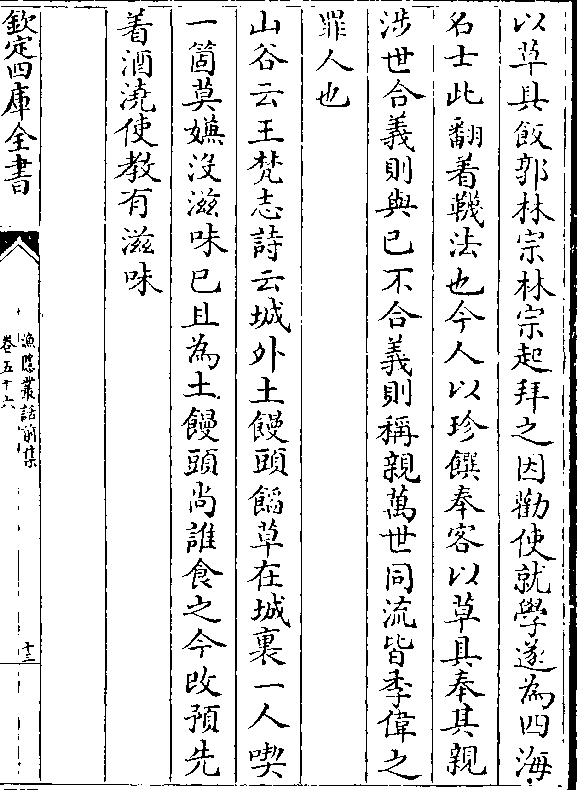 以草具飯郭林宗林宗起拜之因勸使就學遂為四海
名士此翻着韈法也今人以珍饌奉客以草具奉其親
涉世合義則與已不合義則稱親萬世同流皆季偉之
罪人也
山谷云王梵志詩云城外土饅頭餡草在城裏一人喫
一箇莫嫌沒滋味已且為土饅頭尚誰食之今改預先
着酒澆使教有滋味
欽定四庫全書
漁隱叢話前集
卷五十六
十三